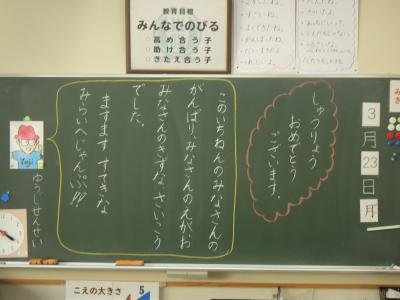 教育目標
みんなでのびる
○高め合う子
○助け合う子
○きたえ合う子
3月23日
月
しゅうりょう
おめでとう
ございます。
このいちねんのみなさんの
がんばり、みなさんのえがお
みなさんのきずな さいこう
でした。
ますます すてきな
みらいへじゃんぷ!!!
Yuji
ゆうじせんせい
こえの大きさ
5